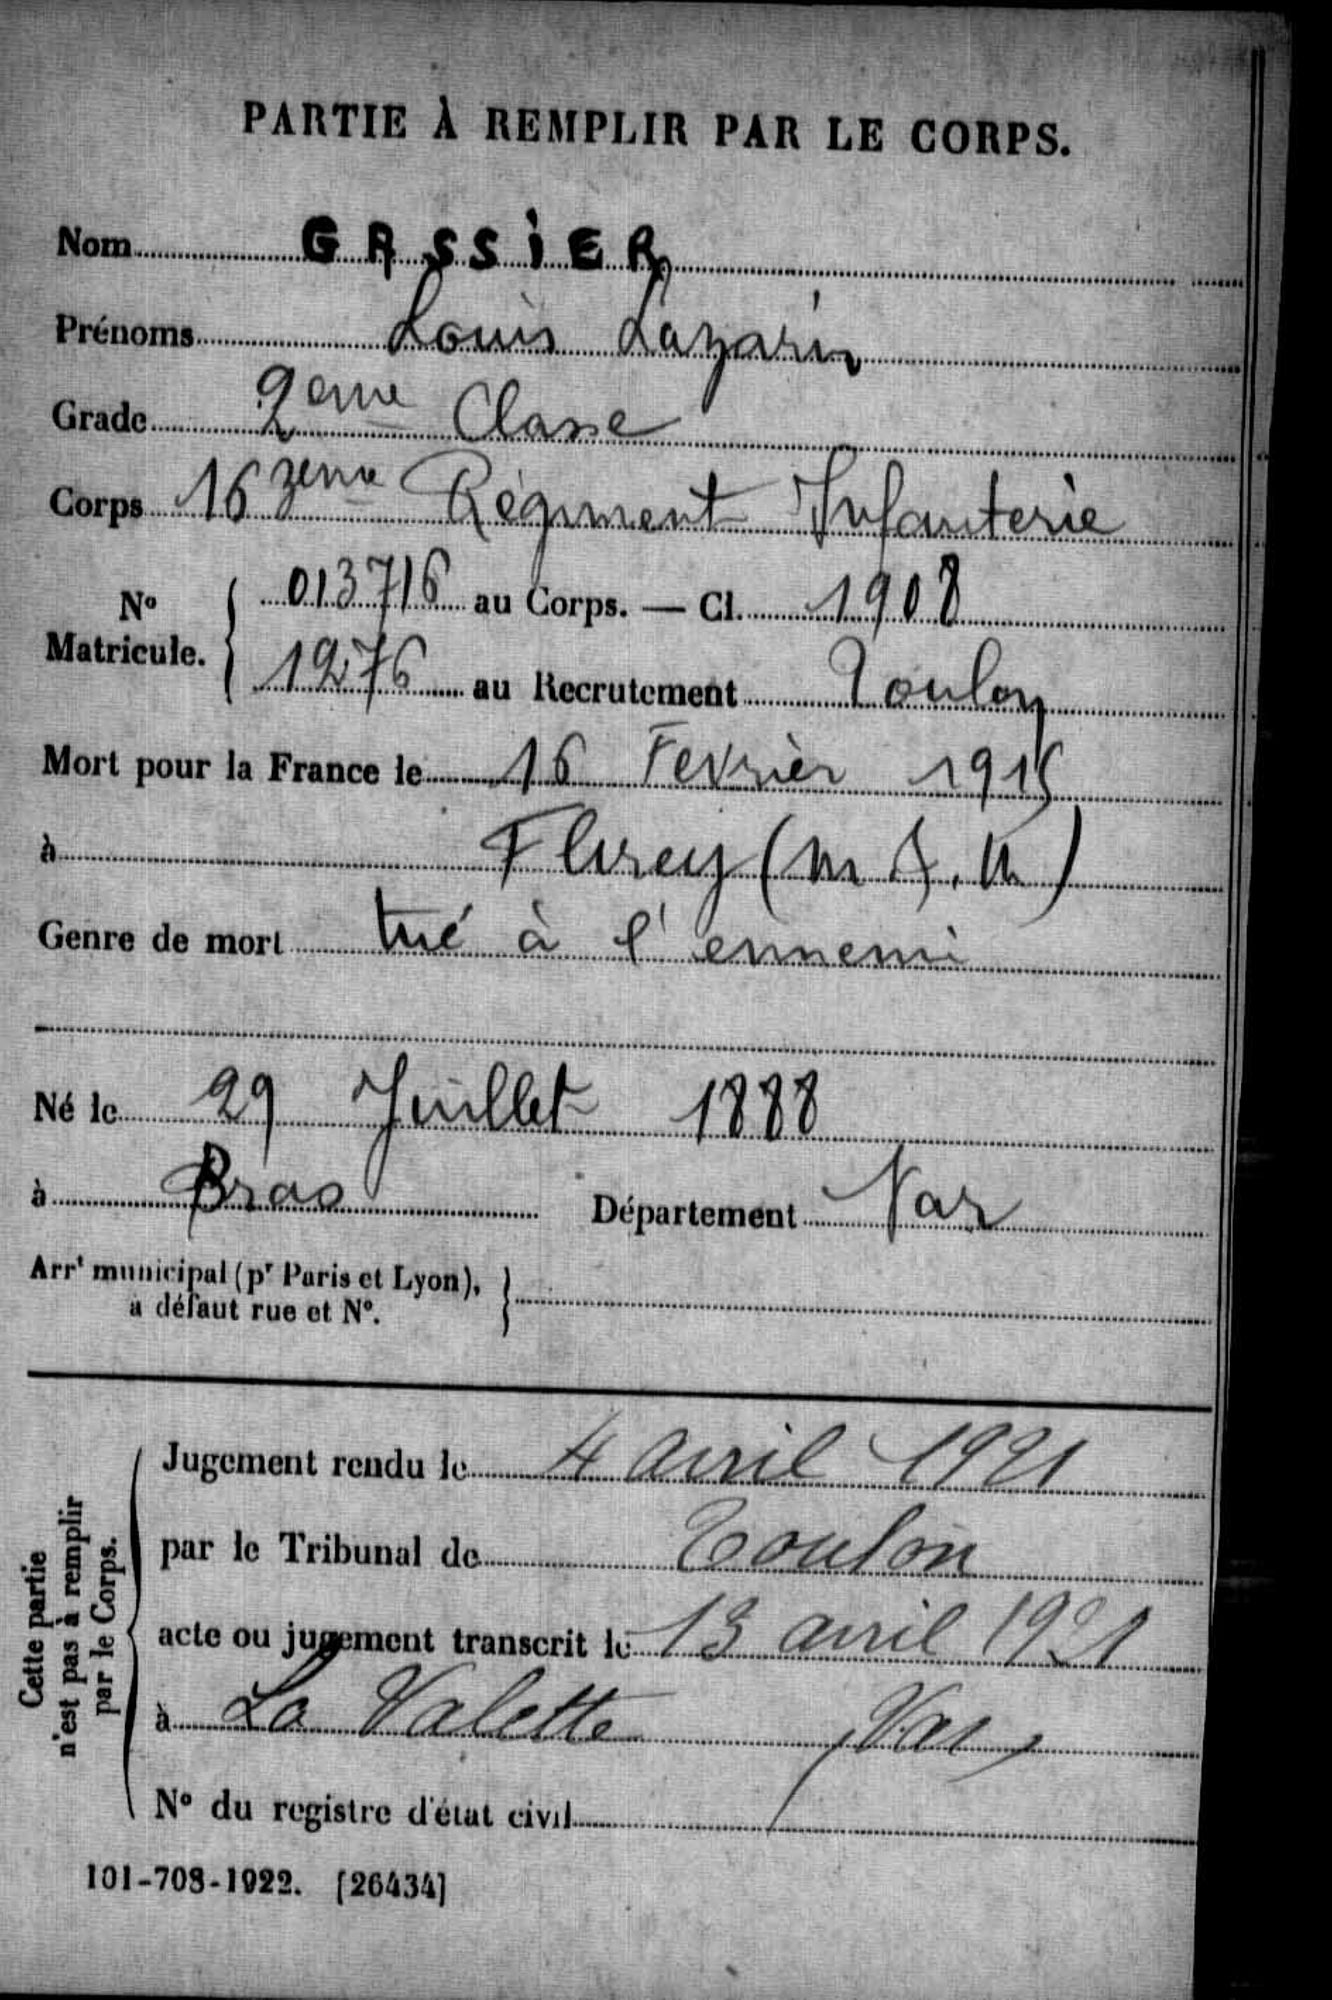 PARTIE À REMPLIR PAR LE CORPS.
Nom GASSiER
Prénoms Louis Lazarin
Grade 2eme Classe
Corps 163eme Régiment Infanterie
No Matricule. 013716 au Corps. — Cl. 1908
1276 au Recrutement Toulon
Mort pour la France le 16 Fevrier 1915
à Flirey (M &. M)
Genre de mort tué à l'ennemi
Né le 29 Juillet 1888
à Bras Département Var
Arrt municipal (pr Paris et Lyon),
a défaut rue et No.
Cette partie
n'est pas à remplir
par le Corps.
Jugement rendu le 4 avril 1921
par le Tribunal de Toulon
acte ou jugement transcrit le 13 avril 1921
à La Valette (Var)
No du registre d'état civil
101-708-1922. [26434]